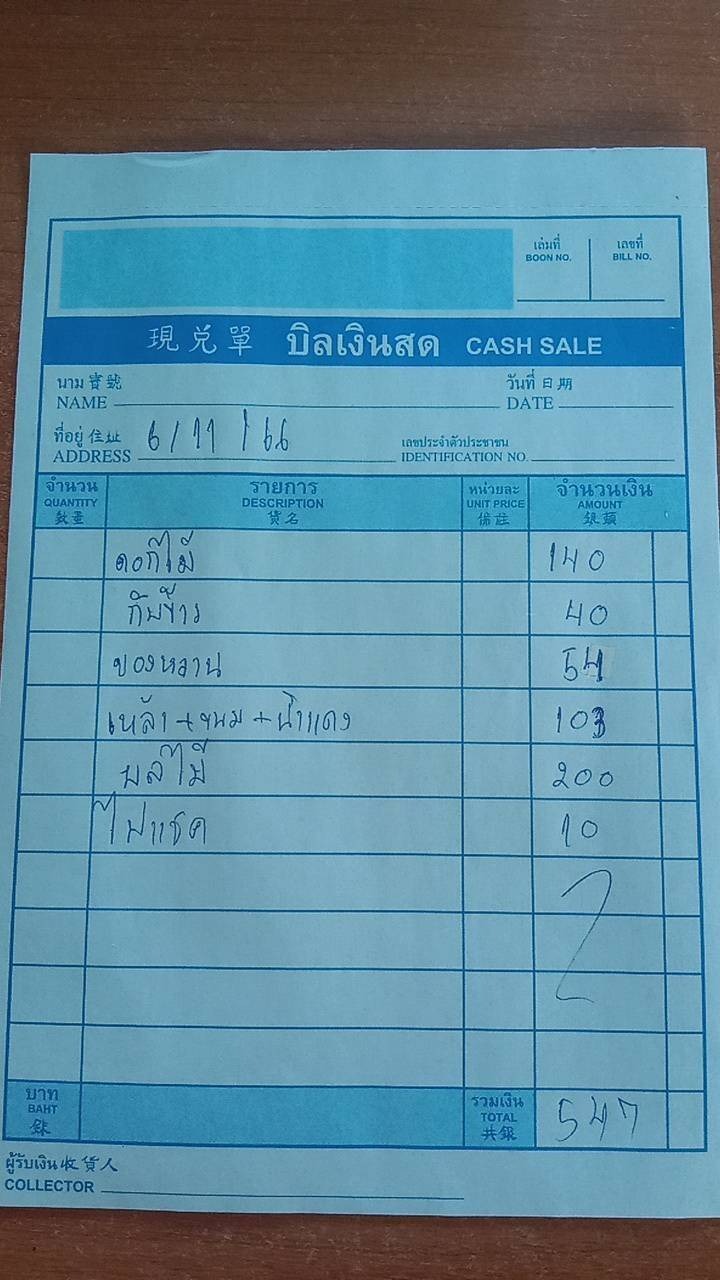 เล่มที่ เลขที่
BOON NO. BILL NO.
現兌單 บิลเงินสด CASH SALE
นาม 寶號 วันที่ 日期
NAME DATE
ที่อยู่ 住址 6/11/66 เลขประจำตัวประชาชน
ADDRESS IDENTIFICATION NO.
จำนวน รายการ หน่วยละ จำนวนเงิน
QUANTITY DESCRIPTION UNIT PRICE AMOUNT
數量 貨名 備註 銀額
ดอกไม้ 140
กับข้าว 40
ของหวาน 54
เหล้า + ขนม + น้ำแดง 103
ผลไม้ 200
ไฟแช็ค 10
บาท รวมเงิน
BAHT TOTAL 547
銖 共銀
ผู้รับเงิน 收貨人
COLLECTOR